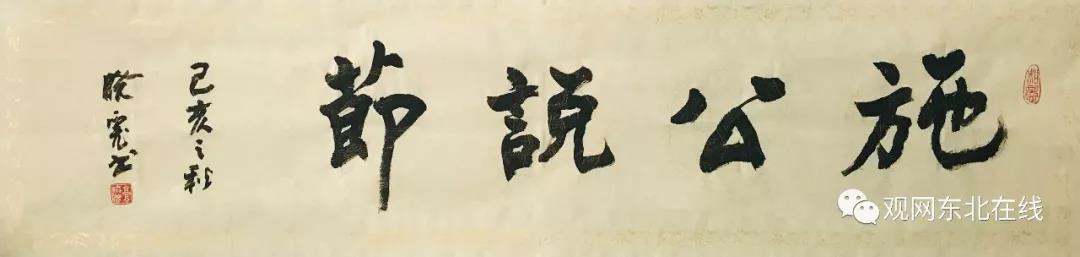 施公說節
己亥之秋
書
观网东北在线